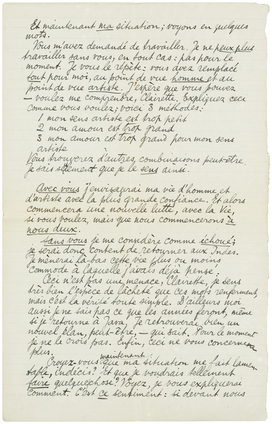 Et maintenant ma situation; voyons en quelques
mots.
Vous m'avez demandé de travailler. Je ne peux plus
travailler sans vous, en tout cas: pas pour le
moment. Je vous le répète: vous avez remplacé
tout pour moi, au point de vue homme et au
point de vue artiste. J'espère que vous pouvez
- voulez me comprendre, Clairette. Expliquez ceci
comme vous voulez; voici 3 méthodes:
1 mon sens artiste est trop petit
2 mon amour est trop grand
3 mon amour est trop grand pour mon sens
artiste.
Vous trouverez d'autres combinaisons peut-être
je sais seulement que je le sens ainsi.
Avec vous j'envisagerai ma vie d'homme et
d'artiste avec la plus grande confiance. Et alors
commencera une nouvelle lutte, avec la vie,
si vous voulez, mais que nous commencerons à
nous deux.
Sans vous je me considère comme échoué;
je serai donc content de retourner aux Indes.
Je mènerai là-bas cette vie plus ou moins
commode à laquelle j'avais déjà pensé.
Ceci n'est pas une menace, Clairette, je sens
très bien l'espèce de lâcheté que ces mots renferment,
mais c'est la vérité toute simple. D'ailleurs moi
aussi je ne sais pas ce que les années feront, même
si je retourne à Java. Je retrouverai bien un
nouvel élan, peut-être, - qui sait. Pour le moment
je ne la crois pas. Enfin, ceci ne vous concernera
plus.
Croyez-vous maintenant que ma situation me fait lamen-
table, indécis? Et que je voudrais tellement
faire quelque chose? Voyez, je vous expliquerai
comment. C'est ce sentiment: si devant nous